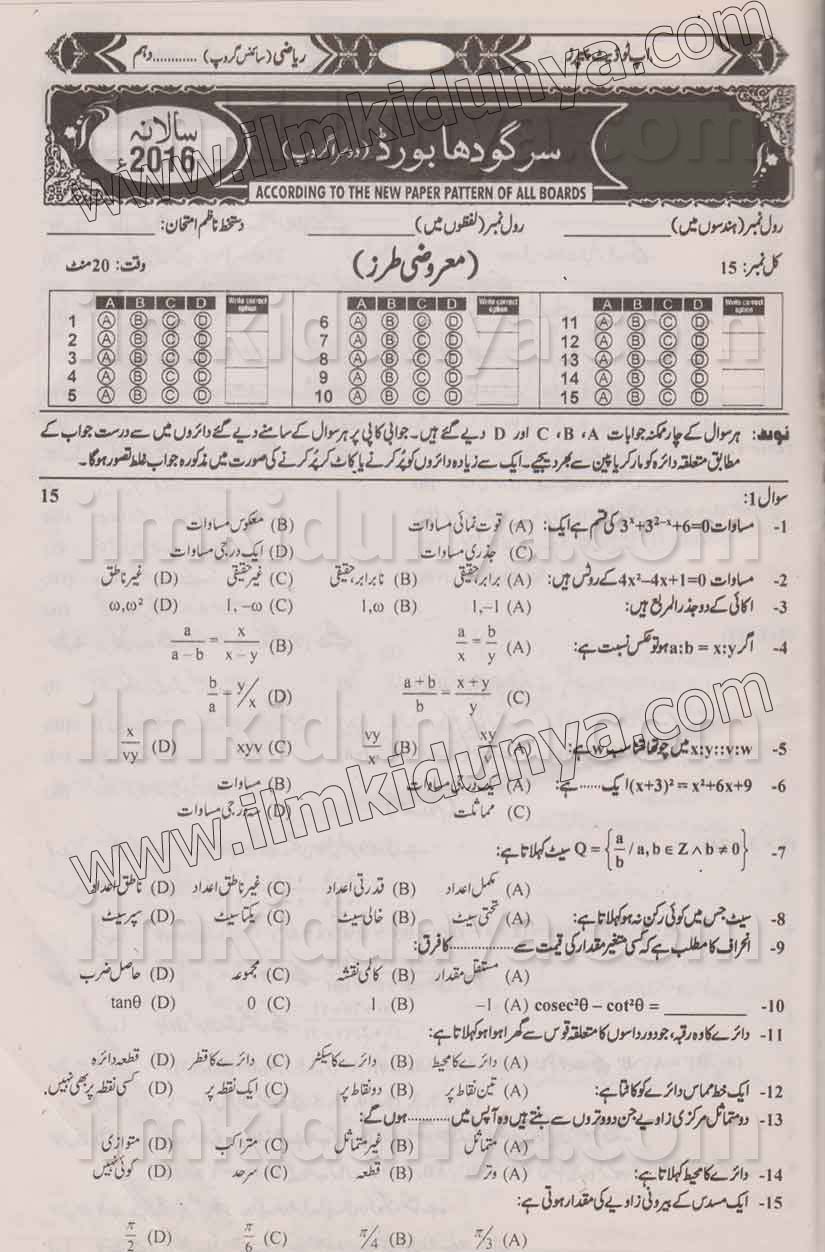 اپ ٹو ڈیٹ پیپرز
ریاضی (سائنس گروپ) ............ دہم
سرگودھا بورڈ (دوسرا گروپ)
سالانہ 2016ء
ACCORDING TO THE NEW PAPER PATTERN OF ALL BOARDS
رول نمبر (ہندسوں میں) ____________ رول نمبر (لفظوں میں) ____________ دستخط ناظم امتحان: ____________
کل نمبر: 15 (معروضی طرز) وقت: 20 منٹ
A B C D Write correct option A B C D Write correct option A B C D Write correct option
1 A B C D 6 A B C D 11 A B C D
2 A B C D 7 A B C D 12 A B C D
3 A B C D 8 A B C D 13 A B C D
4 A B C D 9 A B C D 14 A B C D
5 A B C D 10 A B C D 15 A B C D
نوٹ: ہر سوال کے چار ممکنہ جوابات A، B، C اور D دیے گئے ہیں۔ جوابی کاپی پر ہر سوال کے سامنے دیے گئے دائروں میں سے درست جواب کے
مطابق متعلقہ دائرہ کو مارکر یا پین سے بھر دیجیے۔ ایک سے زیادہ دائروں کو پُر کرنے یا کاٹ کر پُر کرنے کی صورت میں مذکورہ جواب غلط تصور ہوگا۔
سوال 1: 15
1- مساوات 3ˣ+3²⁻ˣ+6=0 کی قسم ہے ایک: (A) قوت نمائی مساوات (B) معکوس مساوات
(C) جذری مساوات (D) ایک درجی مساوات
2- مساوات 4x²−4x+1=0 کے روٹس ہیں: (A) برابر، حقیقی (B) نابرابر، حقیقی (C) غیر حقیقی (D) غیر ناطق
3- اکائی کے دو جذر المربع ہیں: (A) 1,−1 (B) 1,ω (C) 1,−ω (D) ω,ω²
4- اگر a:b = x:y ہو تو عکس نسبت ہے: (A) a/x = b/y (B) a/(a−b) = x/(x−y)
(C) (a+b)/b = (x+y)/y (D) b/a = y/x
5- x:y::v:w میں چوتھا تناسب w ہے: (A) xy/v (B) vy/x (C) xyv (D) x/vy
6- (x+3)² = x²+6x+9 ایک ...... ہے: (A) یک درجی مساوات (B) مساوات
(C) مماثلت (D) دو درجی مساوات
7- Q = {a/b / a,b ∈ Z ∧ b ≠ 0} سیٹ کہلاتا ہے:
(A) مکمل اعداد (B) قدرتی اعداد (C) غیر ناطق اعداد (D) ناطق اعداد
8- سیٹ جس میں کوئی رکن نہ ہو کہلاتا ہے: (A) تحتی سیٹ (B) خالی سیٹ (C) یکتا سیٹ (D) سپر سیٹ
9- انحراف کا مطلب ہے کہ کسی متغیر مقدار کی قیمت سے ............ کا فرق:
(A) مستقل مقدار (B) کالمی نقشہ (C) مجموعہ (D) حاصل ضرب
10- cosec²θ − cot²θ = ________ (A) −1 (B) 1 (C) 0 (D) tanθ
11- دائرے کا وہ رقبہ، جو دو رداسوں کا متعلقہ قوس سے گھرا ہوا ہو کہلاتا ہے:
(A) دائرے کا محیط (B) دائرے کا سیکٹر (C) دائرے کا قطر (D) قطعہ دائرہ
12- ایک خط مماس دائرے کو کاٹتا ہے: (A) تین نقاط پر (B) دو نقاط پر (C) ایک نقطہ پر (D) کسی نقطہ پر بھی نہیں.
13- دو متماثل مرکزی زاویے جن دو وتروں سے بنتے ہیں وہ آپس میں .......... ہوں گے:
(A) متماثل (B) غیر متماثل (C) متراکب (D) متوازی
14- دائرے کا محیط کہلاتا ہے: (A) وتر (B) قطعہ (C) سرحد (D) کوئی نہیں
15- ایک مسدس کے بیرونی زاویے کی مقدار ہوتی ہے:
(A) π/3 (B) π/4 (C) π/6 (D) π/2
www.ilmkidunya.com
www.ilmkidunya.com
ilmkidunya.com
ilmkidunya.com
ilmkidunya.com
ilmkidunya.com
ilmkidunya.com
ilmkidunya.com